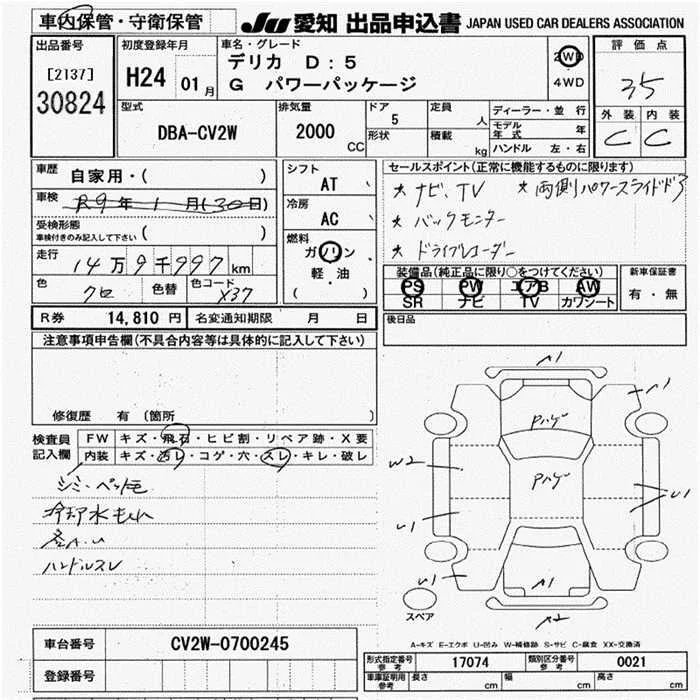 車内保管・守衛保管
JU 愛知 出品申込書 JAPAN USED CAR DEALERS ASSOCIATION
出品番号
[2137]
30824
初度登録年月
H24 01月
車名・グレード
デリカ D:5
G パワーパッケージ
2WD
4WD
評価点
35
外装 内装
C C
型式
DBA-CV2W
排気量
2000 CC
ドア
5
形状
定員 人
積載 kg
ディーラー・並行
モデル年式 年
ハンドル 左・右
車歴 自家用・( )
車検 R9年1月(30日)
受検形態
車検付きのみ記入して下さい ( )
走行 14万9千997km
色 クロ 色替 色コード X37
シフト
AT
冷房
AC
燃料
ガソリン
軽・油
( )
セールスポイント(正常に機能するものに限ります)
* ナビ、TV * 両側パワースライドドア
* バックモニター
* ドライブレコーダー
装備品(純正品に限り○をつけてください)
PS PW エアB AW
SR ナビ TV カワシート
新車保証書
有・無
後日品
R券 14,810円 名変通知期限 月 日
注意事項申告欄(不具合内容等は具体的に記入して下さい)
修復歴 有 (箇所 )
検査員記入欄
FW キズ・飛石・ヒビ割・リペア跡・X要
内装 キズ・汚レ・コゲ・穴・スレ・キレ・破レ
シミ・ペット毛
冷却水もれ
ハンドルスレ
A1
A1
Pハゲ
W2
Pハゲ
U1
U1
U1
A1
A2
スペア
A-キズ E-エクボ U-凹み W-補修跡 S-サビ C-腐食 XX-交換済
車台番号 CV2W-0700245
登録番号
形式指定番号参考 17074 類別区分番号参考 0021
車庫証明用参考 長さ cm 幅 cm 高さ cm